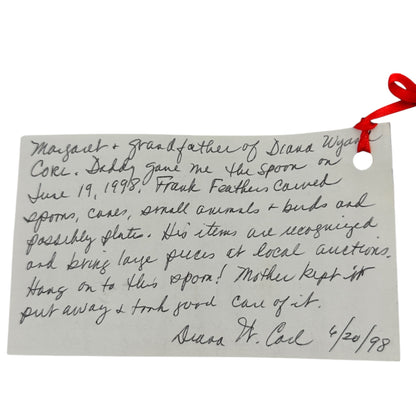 Margaret + grandfather of Diana Wyant
CORL. Daddy gave me the spoon on
June 19, 1998. Frank Feathers carved
spoons, canes, small animals + birds and
possibly plates. His items are recognized
and bring large prices at local auctions.
Hang on to this spoon! Mother kept it
put away + took good care of it.
Diana W. Corl 6/20/98